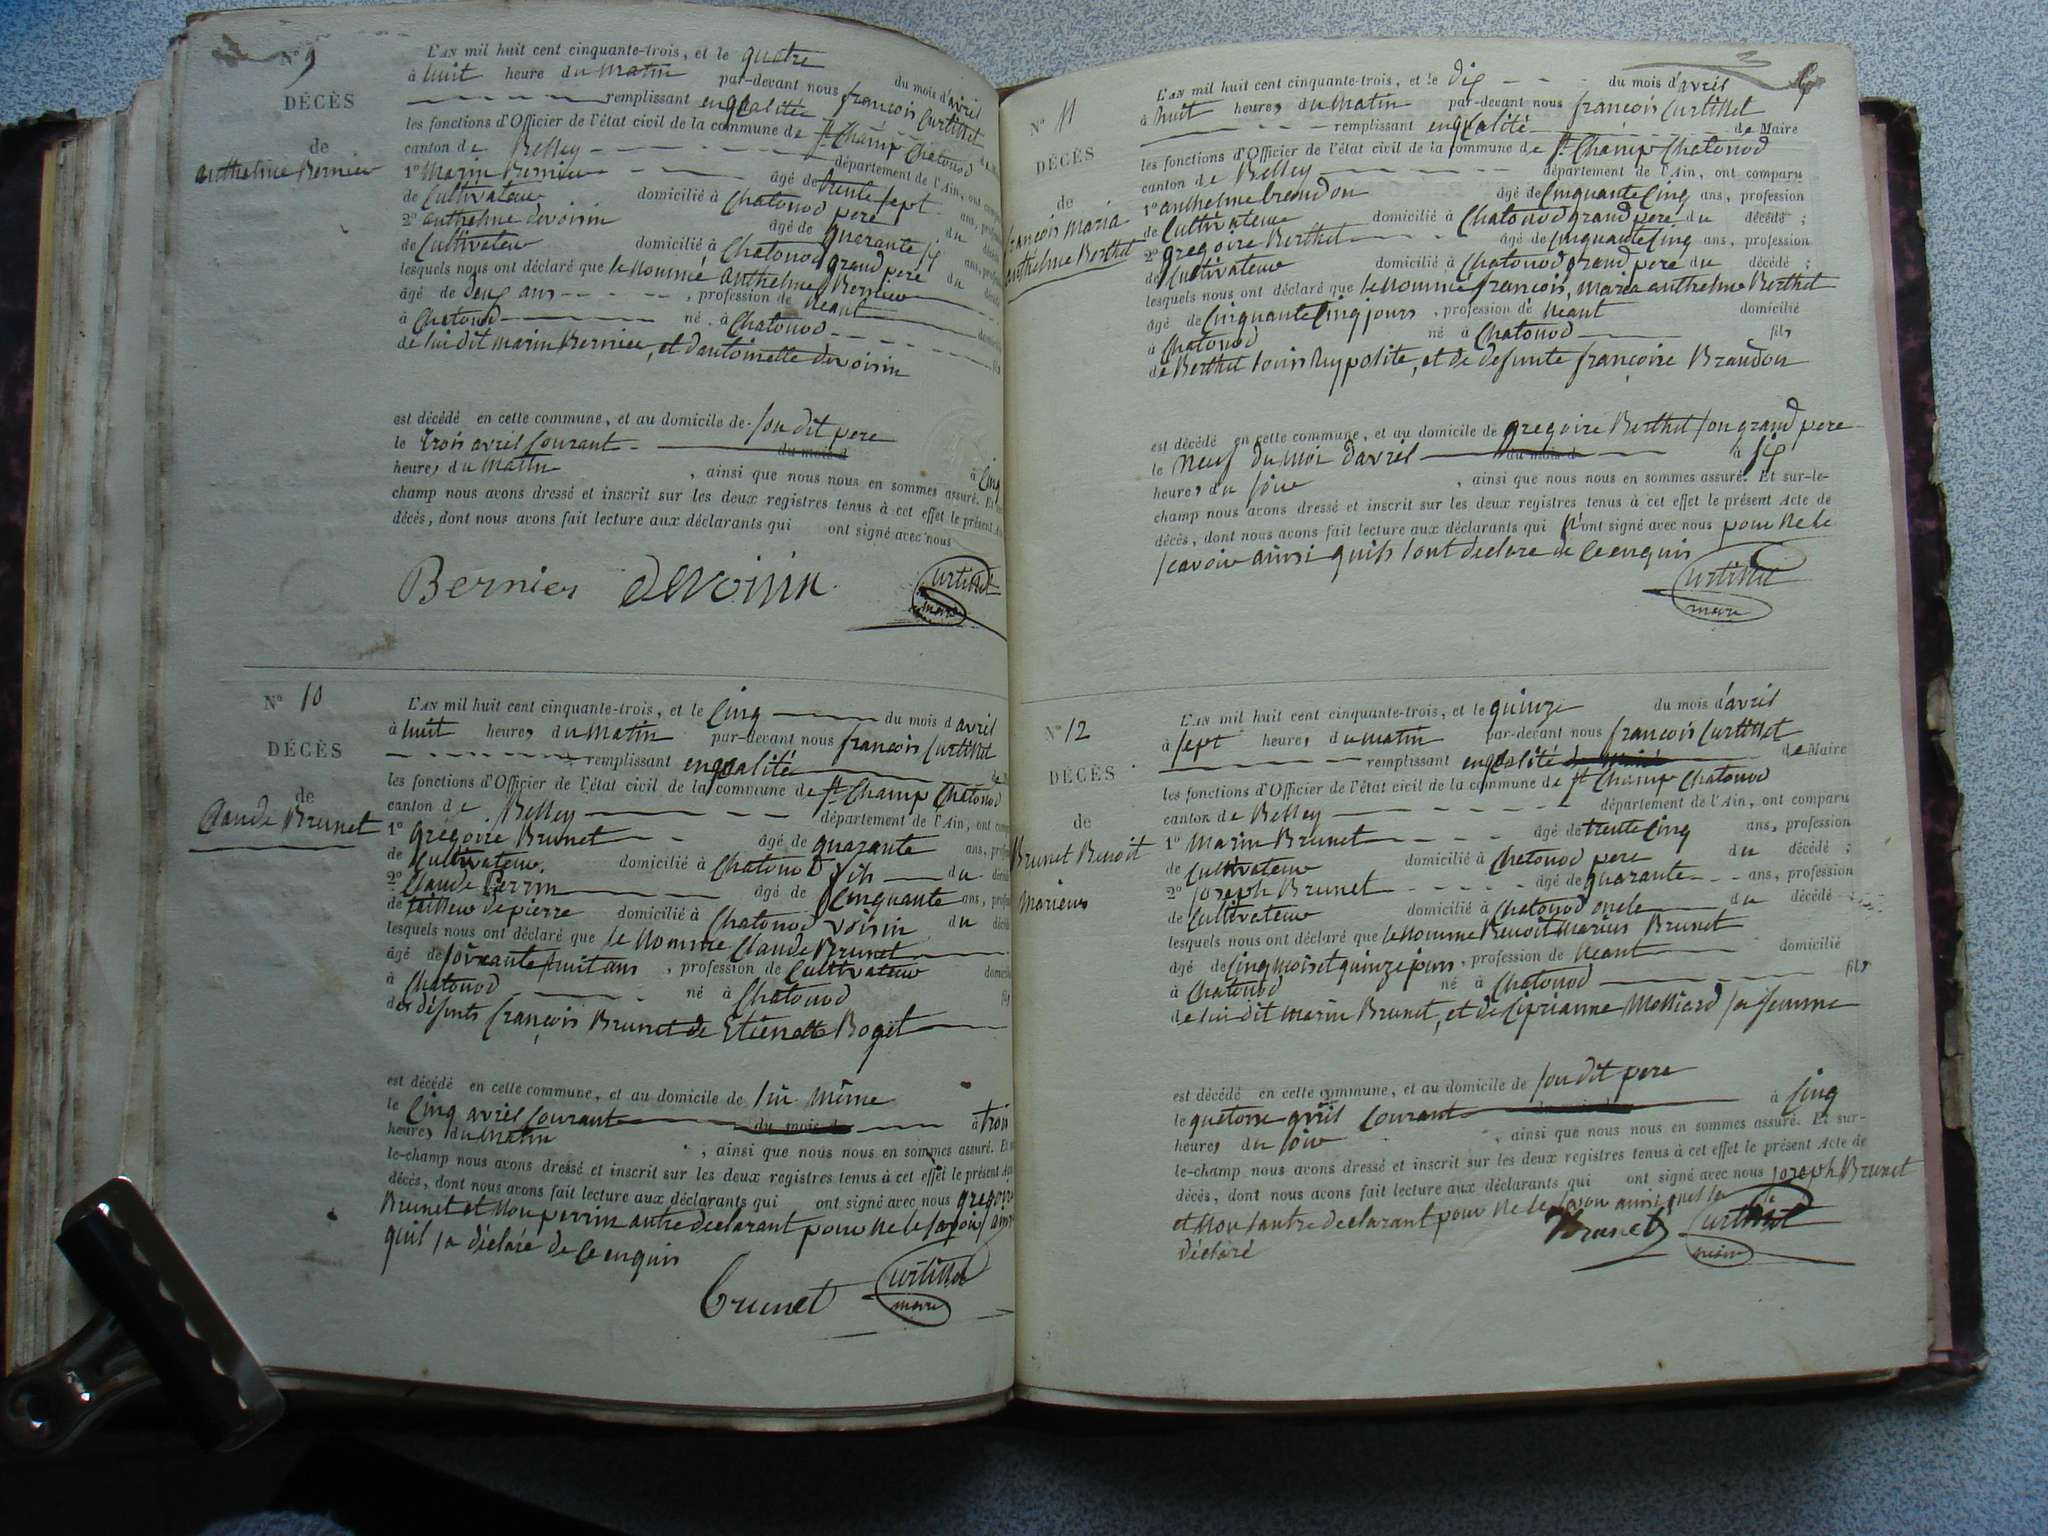 N° 9
DÉCÈS
de
anthelme Bernier
L'AN mil huit cent cinquante-trois, et le quatre du mois d'avril
à huit heure du matin par-devant nous françois Curtillet
remplissant en qualité
les fonctions d'Officier de l'état civil de la commune de St Champ Chatonod
canton de Belley département de l'Ain, ont comparu
1° Marin Bernier âgé de trente sept ans,
de Cultivateur domicilié à Chatonod pere du
2° anthelme devoisin âgé de quarante six ans,
de Cultivateur domicilié à Chatonod grand pere du
lesquels nous ont déclaré que le nommé anthelme Bernier
âgé de deux ans , profession de neant
à Chatonod né à Chatonod
de sui dit marin Bernier, et d'antoinette devoisin
est décédé en cette commune, et au domicile de son dit pere
le trois avril Courant du mois d à cinq
heures du matin , ainsi que nous nous en sommes assuré. Et
champ nous avons dressé et inscrit sur les deux registres tenus à cet effet le présent
décès, dont nous avons fait lecture aux déclarants qui ont signé avec nous
Bernier devoisin Curtillet
maire
N° 10
DÉCÈS
de
Claude Brunet
L'AN mil huit cent cinquante-trois, et le Cinq du mois d'avril
à huit heures du matin par-devant nous françois Curtillet
remplissant en qualité
les fonctions d'Officier de l'état civil de la commune de St Champ Chatonod
canton de Belley département de l'Ain, ont
1° grégoire Brunet âgé de quarante ans,
de Cultivateur domicilié à Chatonod fils du
2° Claude Perrin âgé de Cinquante ans,
de tailleur de pierre domicilié à Chatonod voisin du
lesquels nous ont déclaré que le nommé Claude Brunet
âgé de soixante huit ans , profession de Cultivateur
à Chatonod né à Chatonod
des défunts françois Brunet de Etienette Boget
est décédé en cette commune, et au domicile de lui même
le Cinq avril Courant du mois d à trois
heures du matin , ainsi que nous nous en sommes assuré. Et
le-champ nous avons dressé et inscrit sur les deux registres tenus à cet effet le présent
décès, dont nous avons fait lecture aux déclarants qui ont signé avec nous grégoire
Brunet et Non perrin autre declarant pour ne le savoir ainsi
quil sa déclaré de Ce enquis
Brunet Curtillet
maire
N° 11
DÉCÈS
de
françois Maria
anthelme Berthet
L'AN mil huit cent cinquante-trois, et le dix du mois d'avril
à huit heures du matin par-devant nous françois Curtillet
remplissant en qualité de Maire
les fonctions d'Officier de l'état civil de la commune de St Champ Chatonod
canton de Belley département de l'Ain, ont comparu
1° anthelme braudon âgé de Cinquante Cinq ans, profession
de Cultivateur domicilié à Chatonod grand pere du décédé ;
2° gregoire Berthet âgé de Cinquante Cinq ans, profession
de Cultivateur domicilié à Chatonod grand pere du décédé ;
lesquels nous ont déclaré que le nommé françois, maria anthelme Berthet
âgé de Cinquante Cinq jours , profession de neant domicilié
à Chatonod né à Chatonod fils
de Berthet louis hyppolite, et de defunte françoise Braudon
est décédé en cette commune, et au domicile de gregoire Berthet son grand pere
le neuf du moi d'avril du mois d à six
heures du soir , ainsi que nous nous en sommes assuré. Et sur-le-
champ nous avons dressé et inscrit sur les deux registres tenus à cet effet le présent Acte de
décès, dont nous avons fait lecture aux déclarants qui n'ont signé avec nous pour ne le
scavoir ainsi quils l'ont declare de Ce enquis
Curtillet
maire
N° 12
DÉCÈS
de
Brunet Benoit
Marieus
L'AN mil huit cent cinquante-trois, et le quinze du mois d'avril
à sept heures du matin par-devant nous françois Curtillet
remplissant en qualité de Maire
les fonctions d'Officier de l'état civil de la commune de St Champ Chatonod
canton de Belley département de l'Ain, ont comparu
1° Marin Brunet âgé de trente Cinq ans, profession
de Cultivateur domicilié à Chatonod pere du décédé ;
2° joseph Brunet âgé de quarante ans, profession
de Cultivateur domicilié à Chatonod oncle du décédé ;
lesquels nous ont déclaré que le nommé Benoit marius Brunet
âgé de Cinq mois et quinze jours , profession de neant domicilié
à Chatonod né à Chatonod fils
de sui dit marin Brunet, et de Ciprianne Molliard sa femme
est décédé en cette commune, et au domicile de son dit pere
le quatorze avril Courant à Cinq
heures du soir , ainsi que nous nous en sommes assuré. Et sur-
le-champ nous avons dressé et inscrit sur les deux registres tenus à cet effet le présent Acte de
décès, dont nous avons fait lecture aux déclarants qui ont signé avec nous joseph Brunet
et Non l'autre declarant pour ne le savoir ainsi quil la
déclaré
Brunet Curtillet
maire